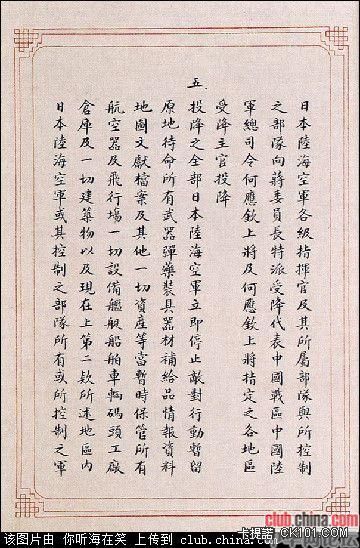 日本陸海空軍各級指揮官及其所屬部隊與所控制
之部隊向蔣委員長特派受降代表中國戰區中國陸
軍總司令何應欽上將及何應欽上將指定之各地區
受降主官投降
五
投降之全部日本陸海空軍立即停止敵對行動暫留
原地待命所有武器彈藥裝具器材補給品情報資料
地圖文獻檔案及其他一切資產等當暫時保管所有
航空器及飛行場一切設備艦艇船舶車輛碼頭工廠
倉庫及一切建築物以及現在上第二欵所述地區內
日本陸海空軍或其控制之部隊所有或所控制之軍
club.china.com
卡提諾 CK101.COM
该图片由 你听海在笑 上传到 club.china.com